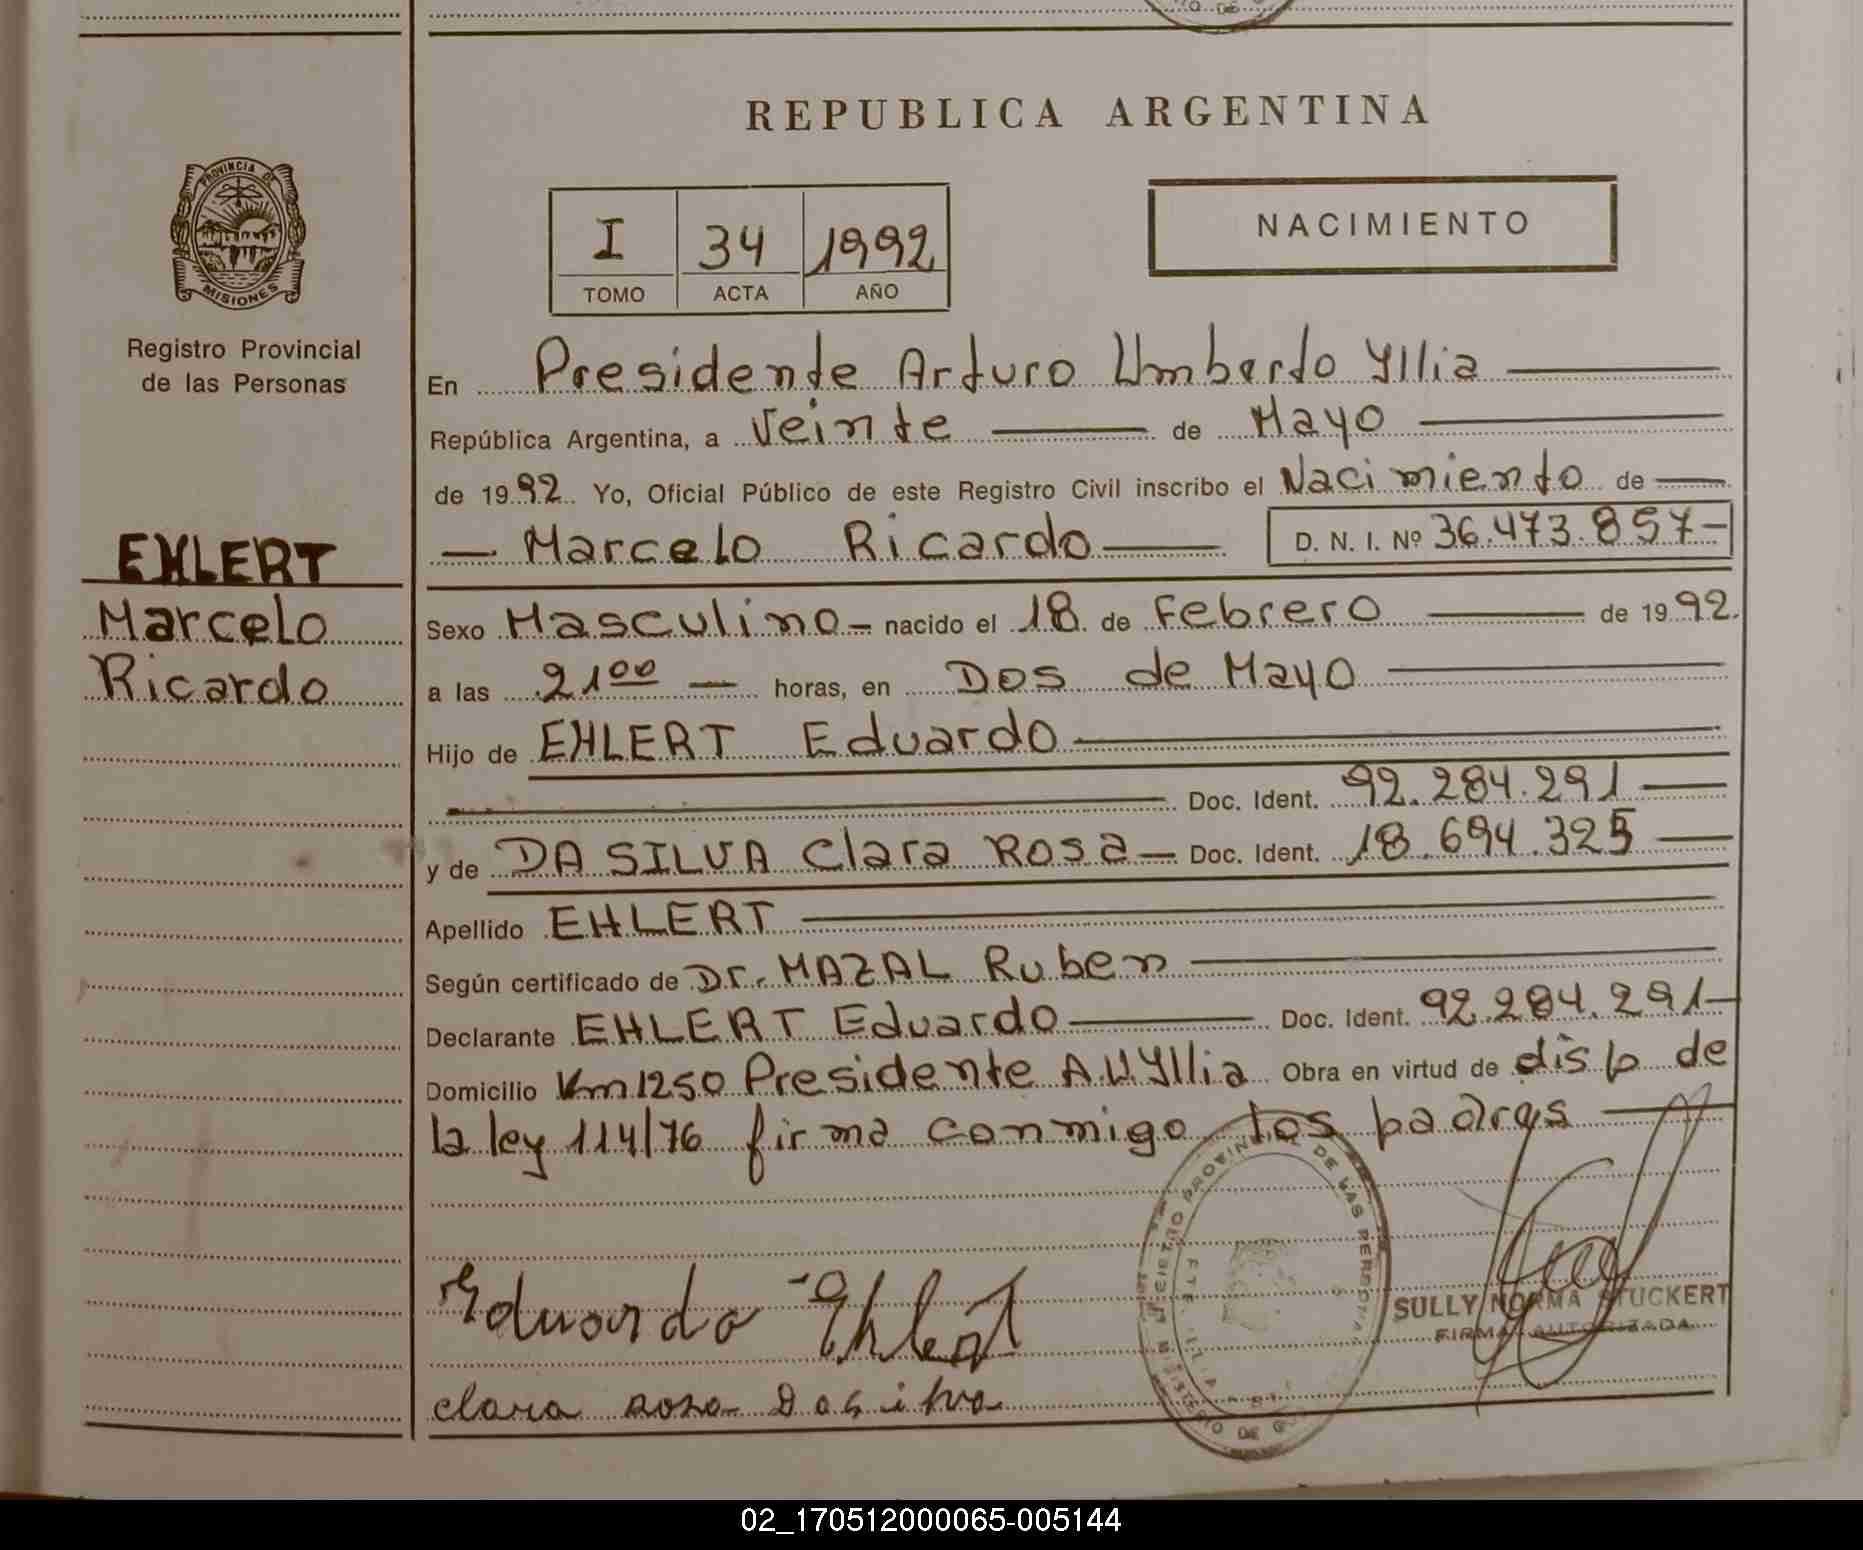 REPUBLICA ARGENTINA
PROVINCIA DE
MISIONES
Registro Provincial
de las Personas
EHLERT
Marcelo
Ricardo
I 34 1992
TOMO ACTA AÑO
NACIMIENTO
En Presidente Arturo Umberto Yllia
República Argentina, a Veinte de Mayo
de 1992 Yo, Oficial Público de este Registro Civil inscribo el Nacimiento de
Marcelo Ricardo D. N. I. Nº 36.473.857-
Sexo Masculino nacido el 18 de Febrero de 1992.
a las 21⁰⁰ horas, en Dos de Mayo
Hijo de EHLERT Eduardo
Doc. Ident. 92.284.291
y de DA SILVA Clara Rosa Doc. Ident. 18.694.325
Apellido EHLERT
Según certificado de Dr. MAZAL Ruben
Declarante EHLERT Eduardo Doc. Ident. 92.284.291
Domicilio Km 1250 Presidente A.U Yllia Obra en virtud de disp de
la ley 114/76 firma conmigo los padres
Eduardo Ehlert
clara rosa Dasilva
DE LAS PERSONAS
SULLY NORMA STUCKERT
FIRMA AUTORIZADA
02_170512000065-005144